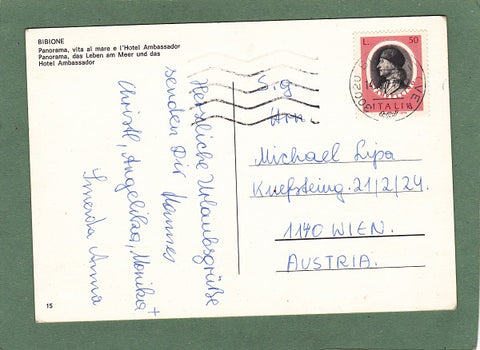 BIBIONE
Panorama, vita al mare e l'Hotel Ambassador
Panorama, das Leben am Meer und das
Hotel Ambassador
Herzliche Urlaubsgrüße
senden Dir Hannes
Christl, Angelika, Monika +
Smerda Anna
15
L. 50
ITALIA
30020
Sig.
Hrn.
Michael Lipa
Kuefsteing. 21/2/24.
1140 WIEN.
AUSTRIA.